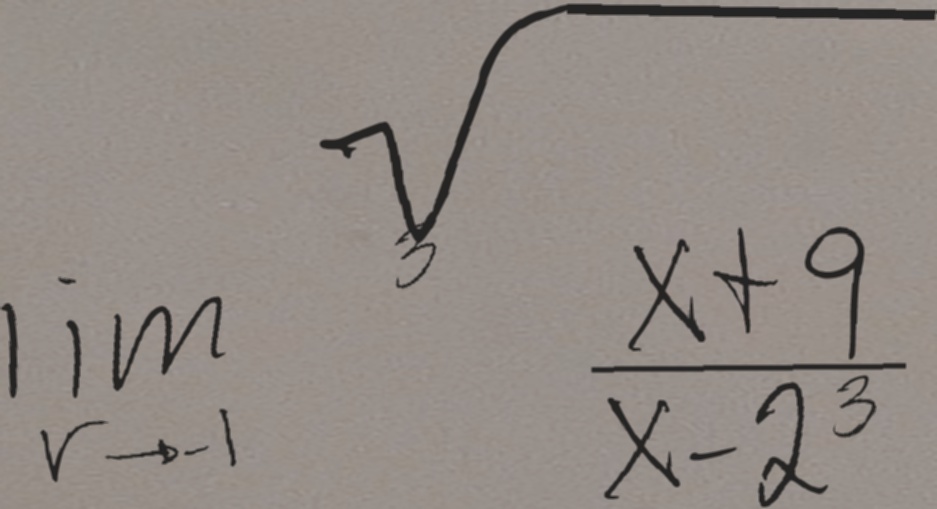 lim r→-1 3√ (x+9)/(x-2³)